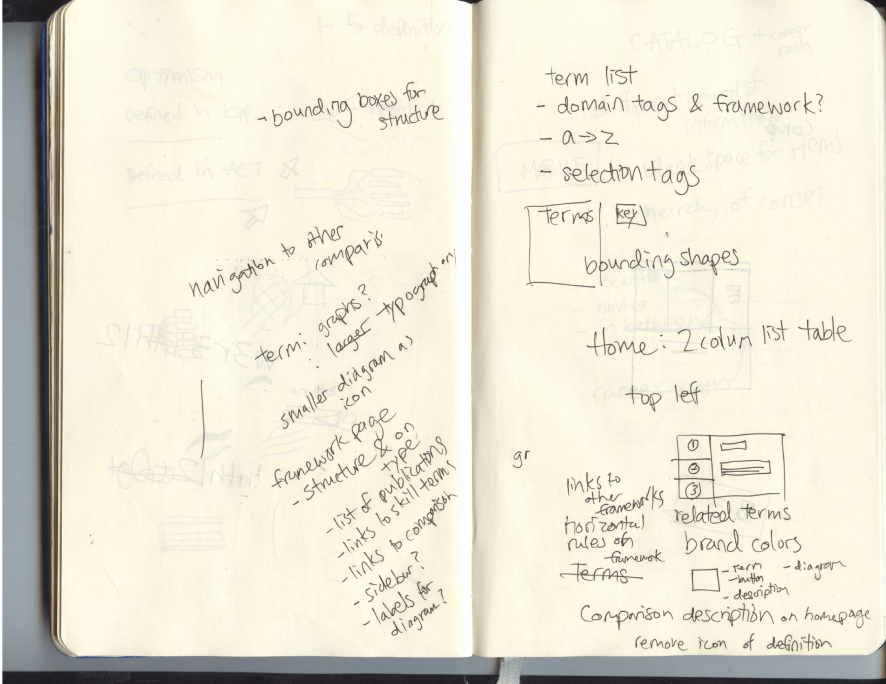 - bounding boxes for
structure
navigation to other
comparis
term: graphs?
: larger typograph on
smaller diagram as
icon
framework page
- structure & on
type
- list of publications
- links to skill terms
- links to comparison
- sidebar?
- labels for
diagram?
term list
- domain tags & framework?
- a → z
- selection tags
Terms
key
bounding shapes
Home: 2 colum list table
top left
gr
1
2
3
links to
other
frameworks
horizontal
rules on
framework
Terms
related terms
brand colors
- term
- button
- description
- diagram
Comparison description on homepage
remove icon of definition